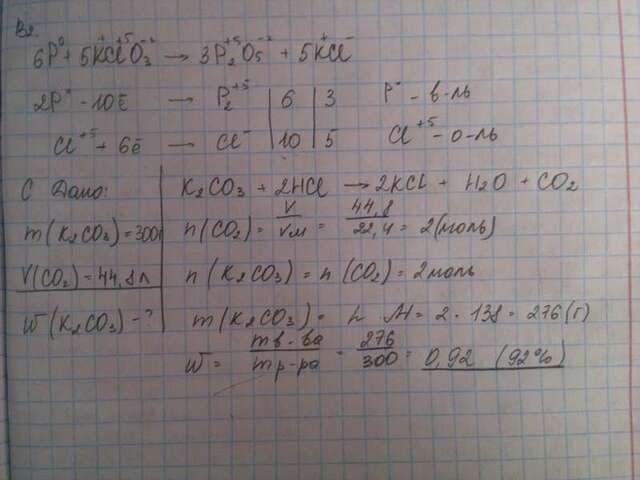 В2.
6P⁰ + 5K⁺Cl⁺⁵O₃⁻² → 3P₂⁺⁵O₅⁻² + 5K⁺Cl⁻
2P⁰ - 10ē → P₂⁺⁵ | 6 | 3 P⁰ - в-ль
Cl⁺⁵ + 6ē → Cl⁻ | 10 | 5 Cl⁺⁵ - о-ль
C Дано:
m(K₂CO₃) = 300г
V(CO₂) = 44,8л
W(K₂CO₃) - ?
K₂CO₃ + 2HCl → 2KCl + H₂O + CO₂
n(CO₂) = V/Vм = 44,8/22,4 = 2(моль)
n(K₂CO₃) = n(CO₂) = 2моль
m(K₂CO₃) = n · M = 2 · 138 = 276(г)
W = mв-ва/mр-ра = 276/300 = 0,92 (92%)